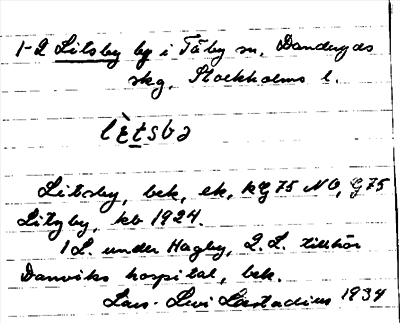 1-2 Litsby by i Täby sn, Danderyds
skg, Stockholms l.
lètsbə
Litsby, bek, ek, kg 75 NO, G 75
Litzby, kb 1924.
1 L. under Hagby, 2 L. tillhör
Danviks hospital, bek.
Lars-Levi Læstadius 1934